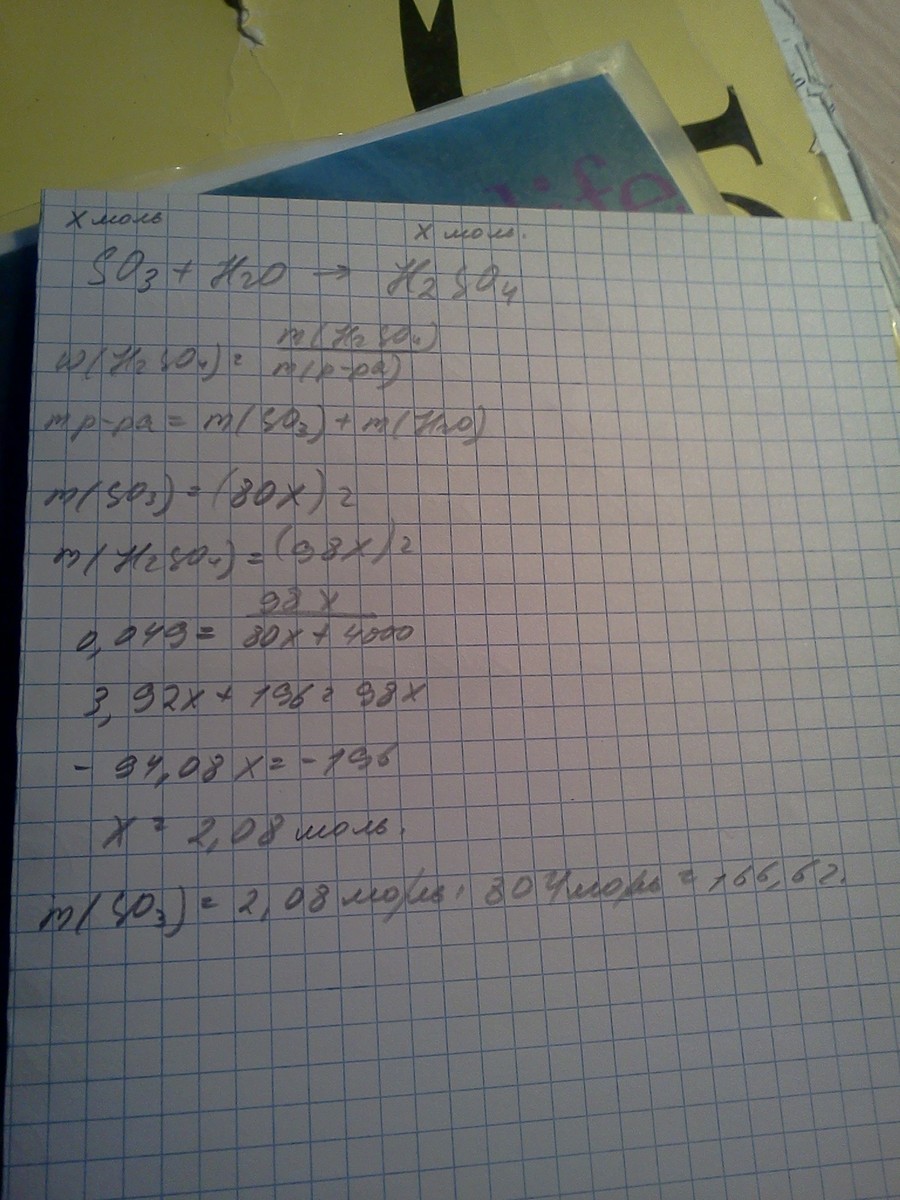 life
х моль
х моль.
SO3 + H2O → H2SO4
w(H2SO4) = m(H2SO4)
m(р-ра)
mр-ра = m(SO3) + m(H2O)
m(SO3) = (80x) г
m(H2SO4) = (98x) г
0,049 = 98x
80x + 4000
3,92x + 196 = 98x
- 94,08x = -196
x = 2,08 моль.
m(SO3) = 2,08 моль · 80 г/моль = 166,6 г.